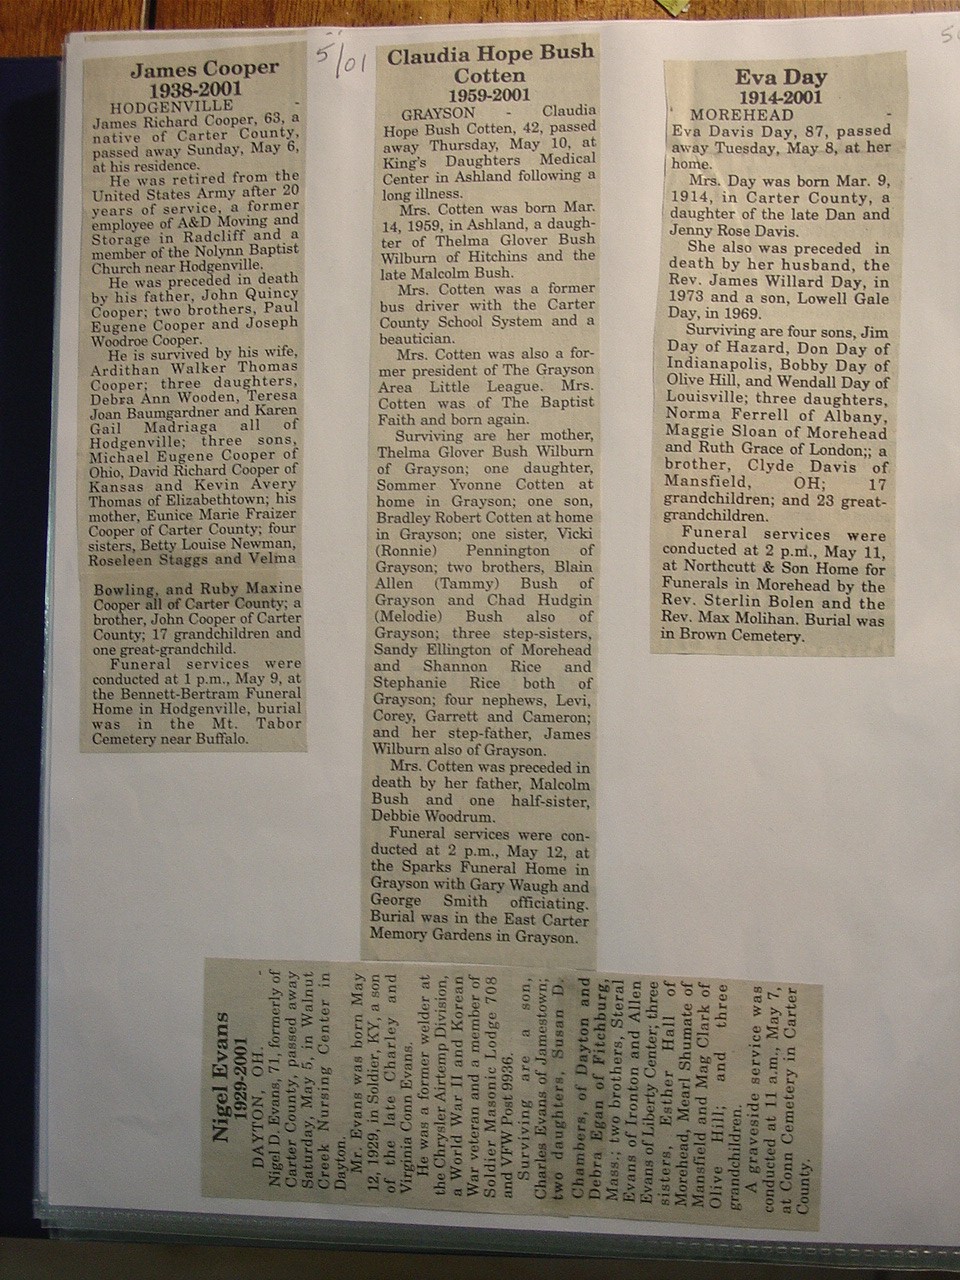 5/01
James Cooper
1938-2001
HODGENVILLE -
James Richard Cooper, 63, a
native of Carter County,
passed away Sunday, May 6,
at his residence.
He was retired from the
United States Army after 20
years of service, a former
employee of A&D Moving and
Storage in Radcliff and a
member of the Nolynn Baptist
Church near Hodgenville.
He was preceded in death
by his father, John Quincy
Cooper; two brothers, Paul
Eugene Cooper and Joseph
Woodroe Cooper.
He is survived by his wife,
Ardithan Walker Thomas
Cooper; three daughters,
Debra Ann Wooden, Teresa
Joan Baumgardner and Karen
Gail Madriaga all of
Hodgenville; three sons,
Michael Eugene Cooper of
Ohio, David Richard Cooper of
Kansas and Kevin Avery
Thomas of Elizabethtown; his
mother, Eunice Marie Fraizer
Cooper of Carter County; four
sisters, Betty Louise Newman,
Roseleen Staggs and Velma
Bowling, and Ruby Maxine
Cooper all of Carter County; a
brother, John Cooper of Carter
County; 17 grandchildren and
one great-grandchild.
Funeral services were
conducted at 1 p.m., May 9, at
the Bennett-Bertram Funeral
Home in Hodgenville, burial
was in the Mt. Tabor
Cemetery near Buffalo.
Claudia Hope Bush
Cotten
1959-2001
GRAYSON - Claudia
Hope Bush Cotten, 42, passed
away Thursday, May 10, at
King's Daughters Medical
Center in Ashland following a
long illness.
Mrs. Cotten was born Mar.
14, 1959, in Ashland, a daugh-
ter of Thelma Glover Bush
Wilburn of Hitchins and the
late Malcolm Bush.
Mrs. Cotten was a former
bus driver with the Carter
County School System and a
beautician.
Mrs. Cotten was also a for-
mer president of The Grayson
Area Little League. Mrs.
Cotten was of The Baptist
Faith and born again.
Surviving are her mother,
Thelma Glover Bush Wilburn
of Grayson; one daughter,
Sommer Yvonne Cotten at
home in Grayson; one son,
Bradley Robert Cotten at home
in Grayson; one sister, Vicki
(Ronnie) Pennington of
Grayson; two brothers, Blain
Allen (Tammy) Bush of
Grayson and Chad Hudgin
(Melodie) Bush also of
Grayson; three step-sisters,
Sandy Ellington of Morehead
and Shannon Rice and
Stephanie Rice both of
Grayson; four nephews, Levi,
Corey, Garrett and Cameron;
and her step-father, James
Wilburn also of Grayson.
Mrs. Cotten was preceded in
death by her father, Malcolm
Bush and one half-sister,
Debbie Woodrum.
Funeral services were con-
ducted at 2 p.m., May 12, at
the Sparks Funeral Home in
Grayson with Gary Waugh and
George Smith officiating.
Burial was in the East Carter
Memory Gardens in Grayson.
Eva Day
1914-2001
MOREHEAD -
Eva Davis Day, 87, passed
away Tuesday, May 8, at her
home.
Mrs. Day was born Mar. 9,
1914, in Carter County, a
daughter of the late Dan and
Jenny Rose Davis.
She also was preceded in
death by her husband, the
Rev. James Willard Day, in
1973 and a son, Lowell Gale
Day, in 1969.
Surviving are four sons, Jim
Day of Hazard, Don Day of
Indianapolis, Bobby Day of
Olive Hill, and Wendall Day of
Louisville; three daughters,
Norma Ferrell of Albany,
Maggie Sloan of Morehead
and Ruth Grace of London;; a
brother, Clyde Davis of
Mansfield, OH; 17
grandchildren; and 23 great-
grandchildren.
Funeral services were
conducted at 2 p.m., May 11,
at Northcutt & Son Home for
Funerals in Morehead by the
Rev. Sterlin Bolen and the
Rev. Max Molihan. Burial was
in Brown Cemetery.
Nigel Evans
1929-2001
DAYTON, OH. -
Nigel D. Evans, 71, formerly of
Carter County, passed away
Saturday, May 5, in Walnut
Creek Nursing Center in
Dayton.
Mr. Evans was born May
12, 1929, in Soldier, KY, a son
of the late Charley and
Virginia Conn Evans.
He was a former welder at
the Chrysler Airtemp Division,
a World War II and Korean
War veteran and a member of
Soldier Masonic Lodge 708
and VFW Post 9936.
Surviving are a son,
Charles Evans of Jamestown;
two daughters, Susan D.
Chambers, of Dayton and
Debra Egan of Fitchburg,
Mass.; two brothers, Steral
Evans of Ironton and Allen
Evans of Liberty Center; three
sisters, Esther Hall of
Morehead, Mearl Shumate of
Mansfield and Mag Clark of
Olive Hill; and three
grandchildren.
A graveside service was
conducted at 11 a.m., May 7,
at Conn Cemetery in Carter
County.